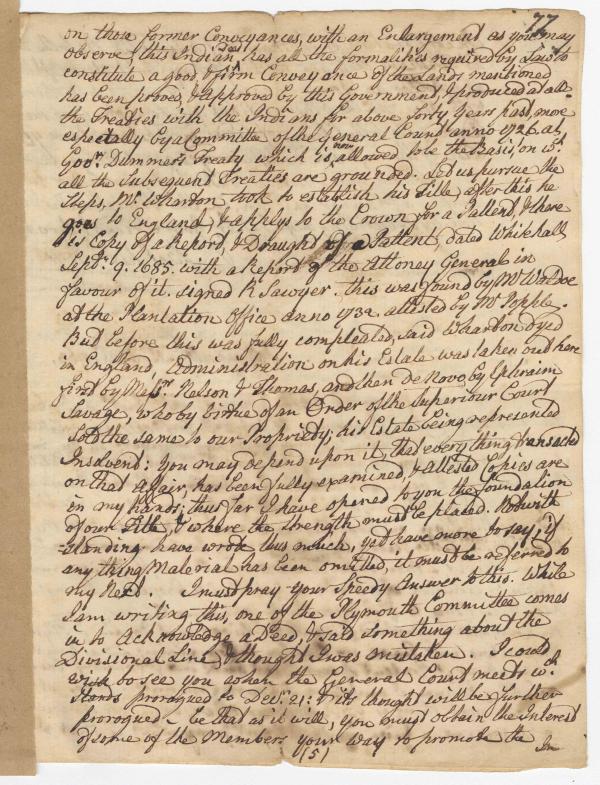 77
on those former Conveyances, with an Enlargement as you may
observe; this Indian deed has all the formalities required by Law to
constitute a good & firm Conveyance of the Lands mentioned
has been proved, & approved by this Government, & produced at all
the Treaties with the Indians for above forty Years past, more
especially by a Committee of the General Court anno 1726. at
Govr. Dummers Treaty which is now allowed to be the Basis, on wch.
all the Subsequent Treaties are grounded. Let us pursue the
Steps, Mr. Wharton took to establish his Title, after this he
goes to England, & applys to the Crown for a Pattent, & there
is Copy of a Report, & Draught of a Pattent, dated Whitehall
Septr. 9. 1685. with a Report of the Attoney General in
favour of it. signed R Sawyer. this was found by Mr Waldoe
at the Plantation Office anno 1732. attested by Mr Popple.
But before this was fully compleated, said Wharton dyed
in England, Administration on his Estate was taken out here
first by Messrs. Nelson & Thomas, and then de Novo by Ephraim
Savage, who by virtue of an Order of the Superiour Court
Sold the same to our Propriety; his Estate being represented
Insolvent: You may depend upon it, that every thing transacted
on that Affair, has been fully examined, & attested Copies are
in my hands; thus far I have opened to you the Foundation
of our Title, & where the Strength must be placed. Notwith
=standing have wrote thus much, yet have more to say; if
any thing Material has been omitted, it must be referred to
my Next. I must pray your Speedy Answer to this. While
I am writing this, one of the Plymouth Committee comes
in to Acknowledge a Deed, & said something about the
Divisional Line, & thought I was mistaken. I could
wish to see you when the General Court meets wch.
stands prorogued to Decr. 21: & its thought will be further
prorogued - be that as it will, you must obtain the Interest
of some of the Members your way to promote the
(5)
Im